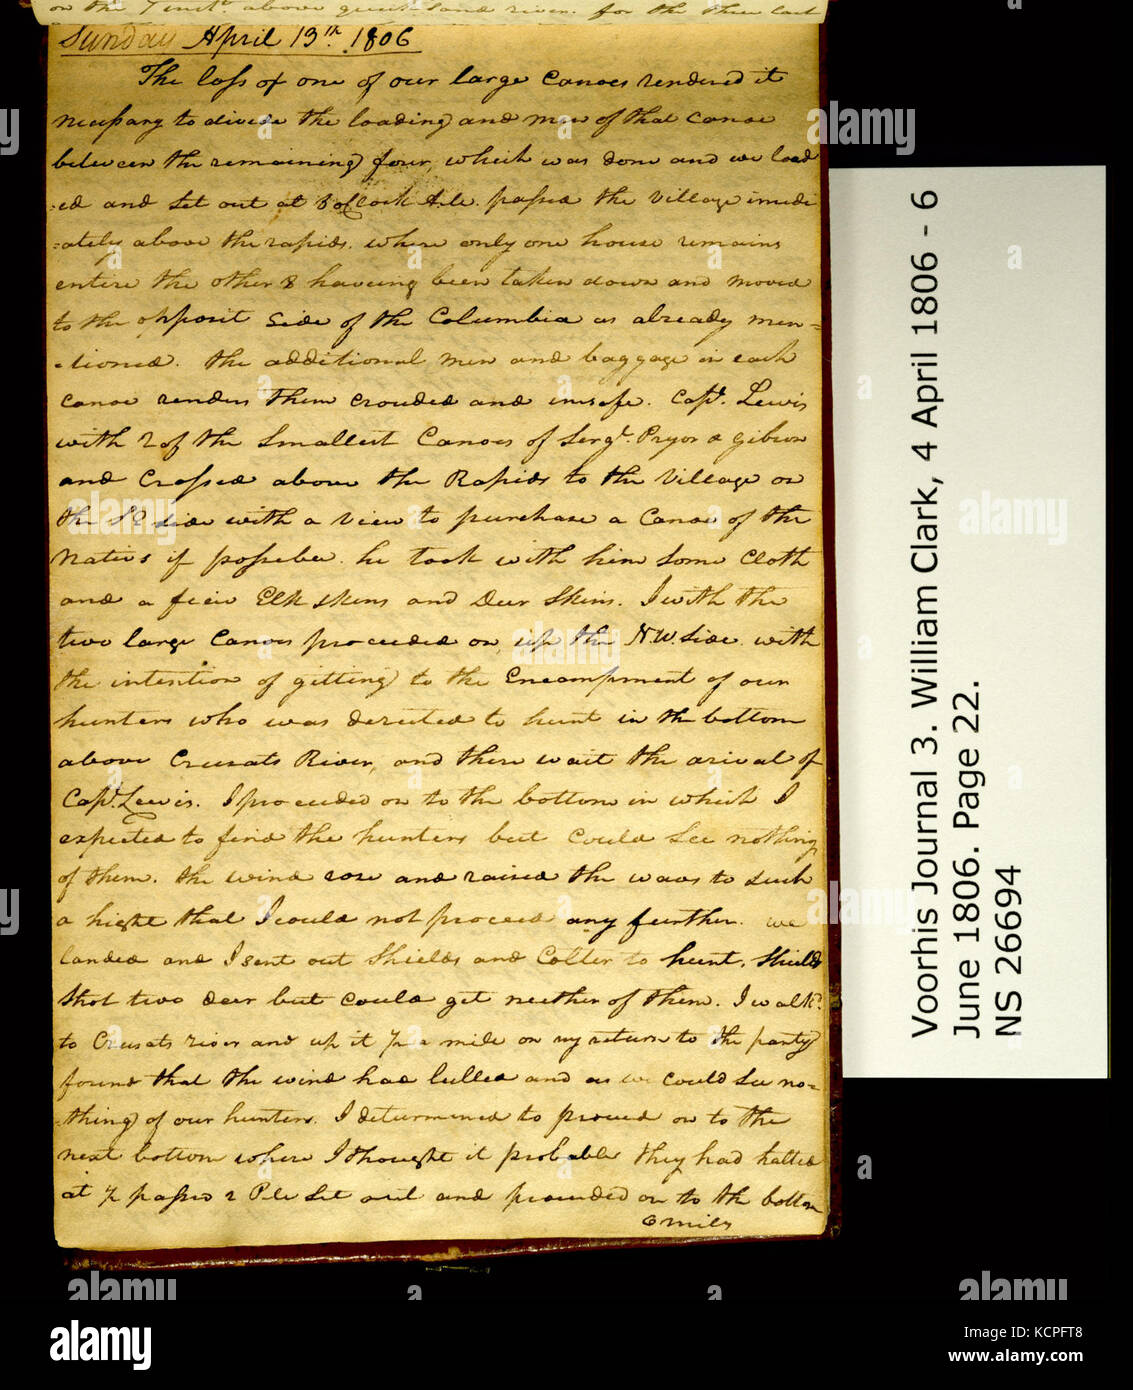 on the          above quick Sand river. for the three last
Sunday April 13th 1806
The loss of one of our large Canoes rendered it
necessary to divide the loading and men of that Canoe
between the remaining four, which was done and we load
=ed and Set out at 8 oClock A.M. passed the village imedi
=ately above the rapids. where only one house remains
entire the other 8 haveing been taken down and moved
to the opposit Side of the Columbia as already men=
=tioned. the additional men and baggage in each
Canoe renders them Crouded and unsafe. Capt. Lewis
with 2 of the Smallest Canoes of Sergt. Pryor & gibson
and Crossed above the Rapids to the Village on
the S E Side with a view to purchase a Canoe of the
nativs if possible. he took with him Some Cloth
and a fiew Elk skins and Deer Skins. I with the
two large Canoes proceeded on up the N.W. Side. with
the intention of gitting to the Encampment of our
hunters who was derected to hunt in the bottom
above Crusats River, and there wait the arival of
Capt. Lewis. I proceeded on to the bottom in which I
expected to find the hunters but Could See nothing
of them. the wind rose and raised the waves to Such
a hight that I could not proceed any further. we
landed and I sent out Shields and Colter to hunt. Shields
Shot two deer but could get neither of them. I walkd.
to Crusats river and up it ½ a mile on my return to the party
found that the wind had lulled and as we could See no=
=thing of our hunters. I determined to proceed on to the
next bottom where I thought it probable they had halted
at ½ passed 2 P M Set out and proceeded on to the bottom
6 miles
Voorhis Journal 3. William Clark, 4 April 1806 - 6
June 1806. Page 22.
NS 26694
alamy
Image ID: KCPFT8
www.alamy.com